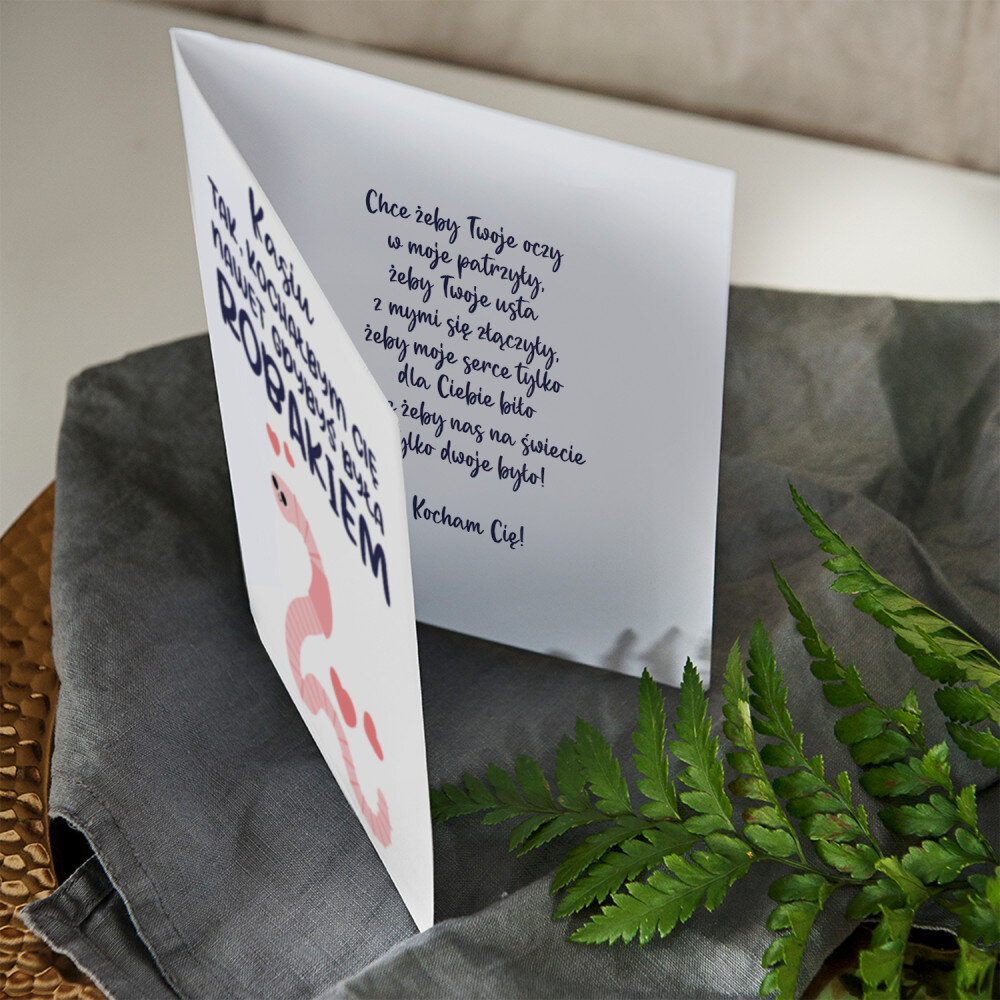 Kasiu
TAK, KOCHAŁBYM CIĘ
NAWET GDYBYŚ BYŁA
ROBAKIEM
Chce żeby Twoje oczy
w moje patrzyły,
żeby Twoje usta
z mymi się złączyły,
żeby moje serce tylko
dla Ciebie biło
żeby nas na świecie
ylko dwoje było!
Kocham Cię!